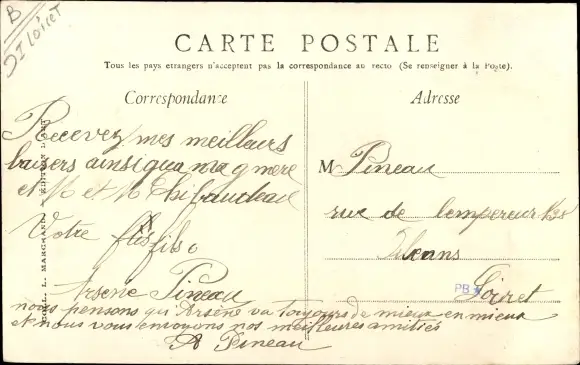 B
DI Loiret
CARTE POSTALE
Tous les pays etrangers n'acceptent pas la correspondance au recto (Se renseigner à la Poste).
Correspondance
Recevez mes meilleurs
baisers ainsi qua ma g mere
et M et M Thibaudeau
Votre fils
Arsène Pineau
nous pensons qu Arsène va toujours de mieux en mieux
et nous vous envoyons nos meilleures amitiés
A Pineau
COLL. L. MARCHAND
Adresse
M Pineau
rue de lempereur 128
Orleans
PB
Loiret